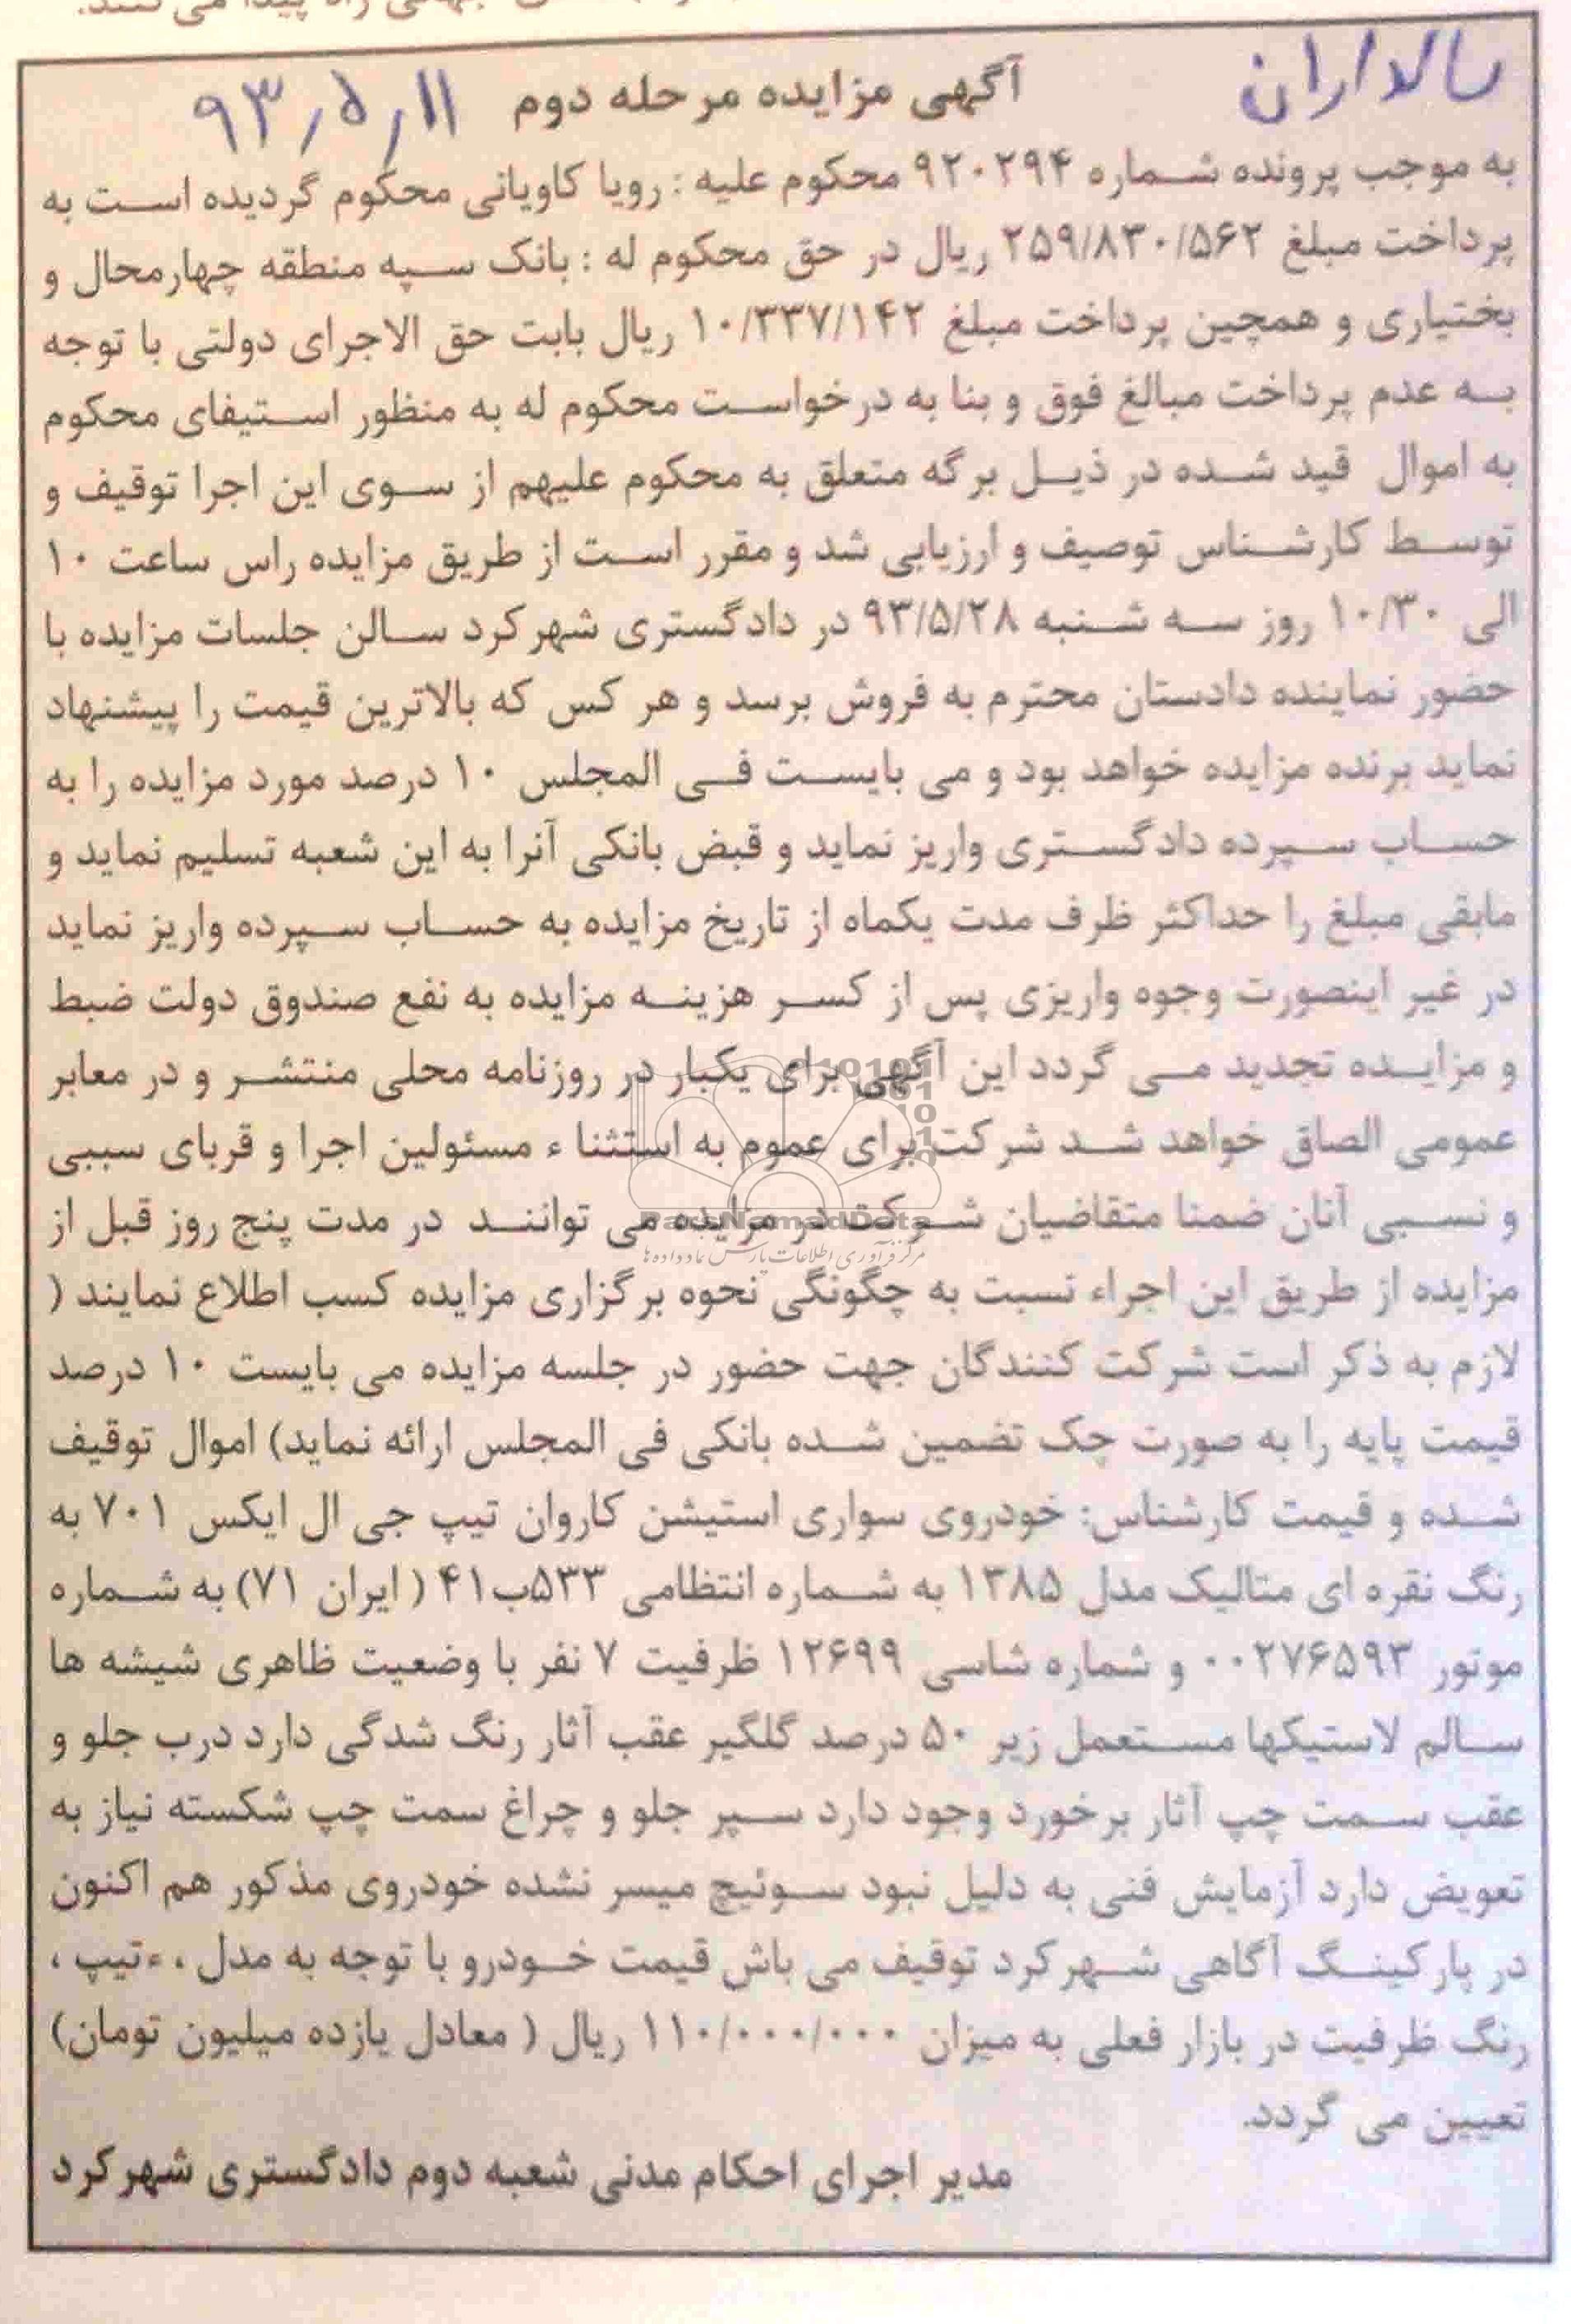 آگهی مزایده مرحله دوم ۹۳/۵/۱۱
به موجب پرونده شماره ۹۲۰۲۹۴ محکوم علیه : رویا کاویانی محکوم گردیده است به
پرداخت مبلغ ۲۵۹/۸۳۰/۵۶۲ ریال در حق محکوم له : بانک سپه منطقه چهارمحال و
بختیاری و همچین پرداخت مبلغ ۱۰/۳۳۷/۱۴۲ ریال بابت حق الاجرای دولتی با توجه
به عدم پرداخت مبالغ فوق و بنا به درخواست محکوم له به منظور استیفای محکوم
به اموال قید شده در ذیل برگه متعلق به محکوم علیهم از سوی این اجرا توقیف و
توسط کارشناس توصیف و ارزیابی شد و مقرر است از طریق مزایده راس ساعت ۱۰
الی ۱۰/۳۰ روز سه شنبه ۹۳/۵/۲۸ در دادگستری شهرکرد سالن جلسات مزایده با
حضور نماینده دادستان محترم به فروش برسد و هر کس که بالاترین قیمت را پیشنهاد
نماید برنده مزایده خواهد بود و می بایست فی المجلس ۱۰ درصد مورد مزایده را به
حساب سپرده دادگستری واریز نماید و قبض بانکی آنرا به این شعبه تسلیم نماید و
مابقی مبلغ را حداکثر ظرف مدت یکماه از تاریخ مزایده به حساب سپرده واریز نماید
در غیر اینصورت وجوه واریزی پس از کسر هزینه مزایده به نفع صندوق دولت ضبط
و مزایده تجدید می گردد این آگهی برای یکبار در روزنامه محلی منتشر و در معابر
عمومی الصاق خواهد شد شرکت برای عموم به استثنا ء مسئولین اجرا و قربای سببی
و نسبی آنان ضمنا متقاضیان شرکت در مزایده می توانند در مدت پنج روز قبل از
ParsNamadData
مرکز فرآوری اطلاعات پارس نماد داده ها
مزایده از طریق این اجراء نسبت به چگونگی نحوه برگزاری مزایده کسب اطلاع نمایند (
لازم به ذکر است شرکت کنندگان جهت حضور در جلسه مزایده می بایست ۱۰ درصد
قیمت پایه را به صورت چک تضمین شده بانکی فی المجلس ارائه نماید) اموال توقیف
شده و قیمت کارشناس: خودروی سواری استیشن کاروان تیپ جی ال ایکس ۷۰۱ به
رنگ نقره ای متالیک مدل ۱۳۸۵ به شماره انتظامی ۵۳۳ب۴۱ ( ایران ۷۱) به شماره
موتور ۰۰۲۷۶۵۹۳ و شماره شاسی ۱۲۶۹۹ ظرفیت ۷ نفر با وضعیت ظاهری شیشه ها
سالم لاستیکها مستعمل زیر ۵۰ درصد گلگیر عقب آثار رنگ شدگی دارد درب جلو و
عقب سمت چپ آثار برخورد وجود دارد سپر جلو و چراغ سمت چپ شکسته نیاز به
تعویض دارد آزمایش فنی به دلیل نبود سوئیچ میسر نشده خودروی مذکور هم اکنون
در پارکینگ آگاهی شهرکرد توقیف می باش قیمت خودرو با توجه به مدل ، ،تیپ ،
رنگ ظرفیت در بازار فعلی به میزان ۱۱۰/۰۰۰/۰۰۰ ریال ( معادل یازده میلیون تومان)
تعیین می گردد.
مدیر اجرای احکام مدنی شعبه دوم دادگستری شهرکرد